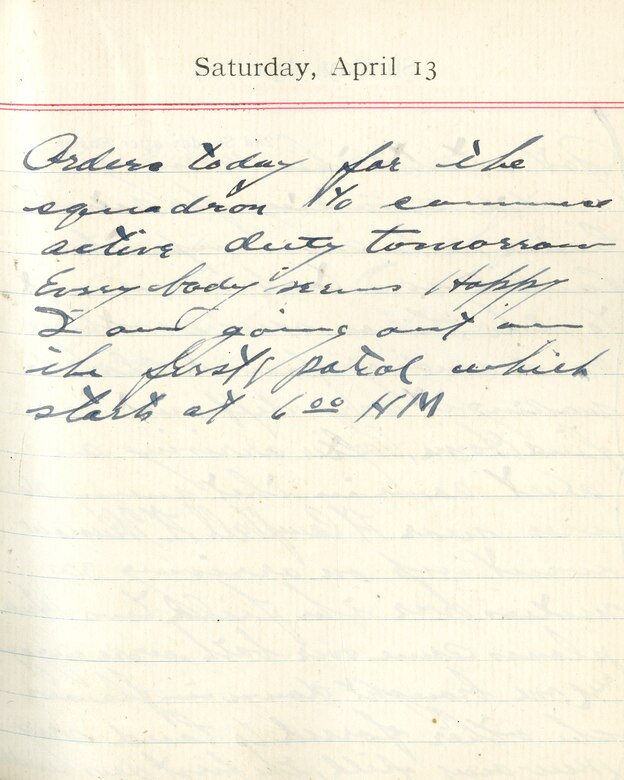 Saturday, April 13
Orders today for the
squadron to commence
active duty tomorrow
Every body seems Happy
I am going out on
the first patrol which
starts at 6 00 AM